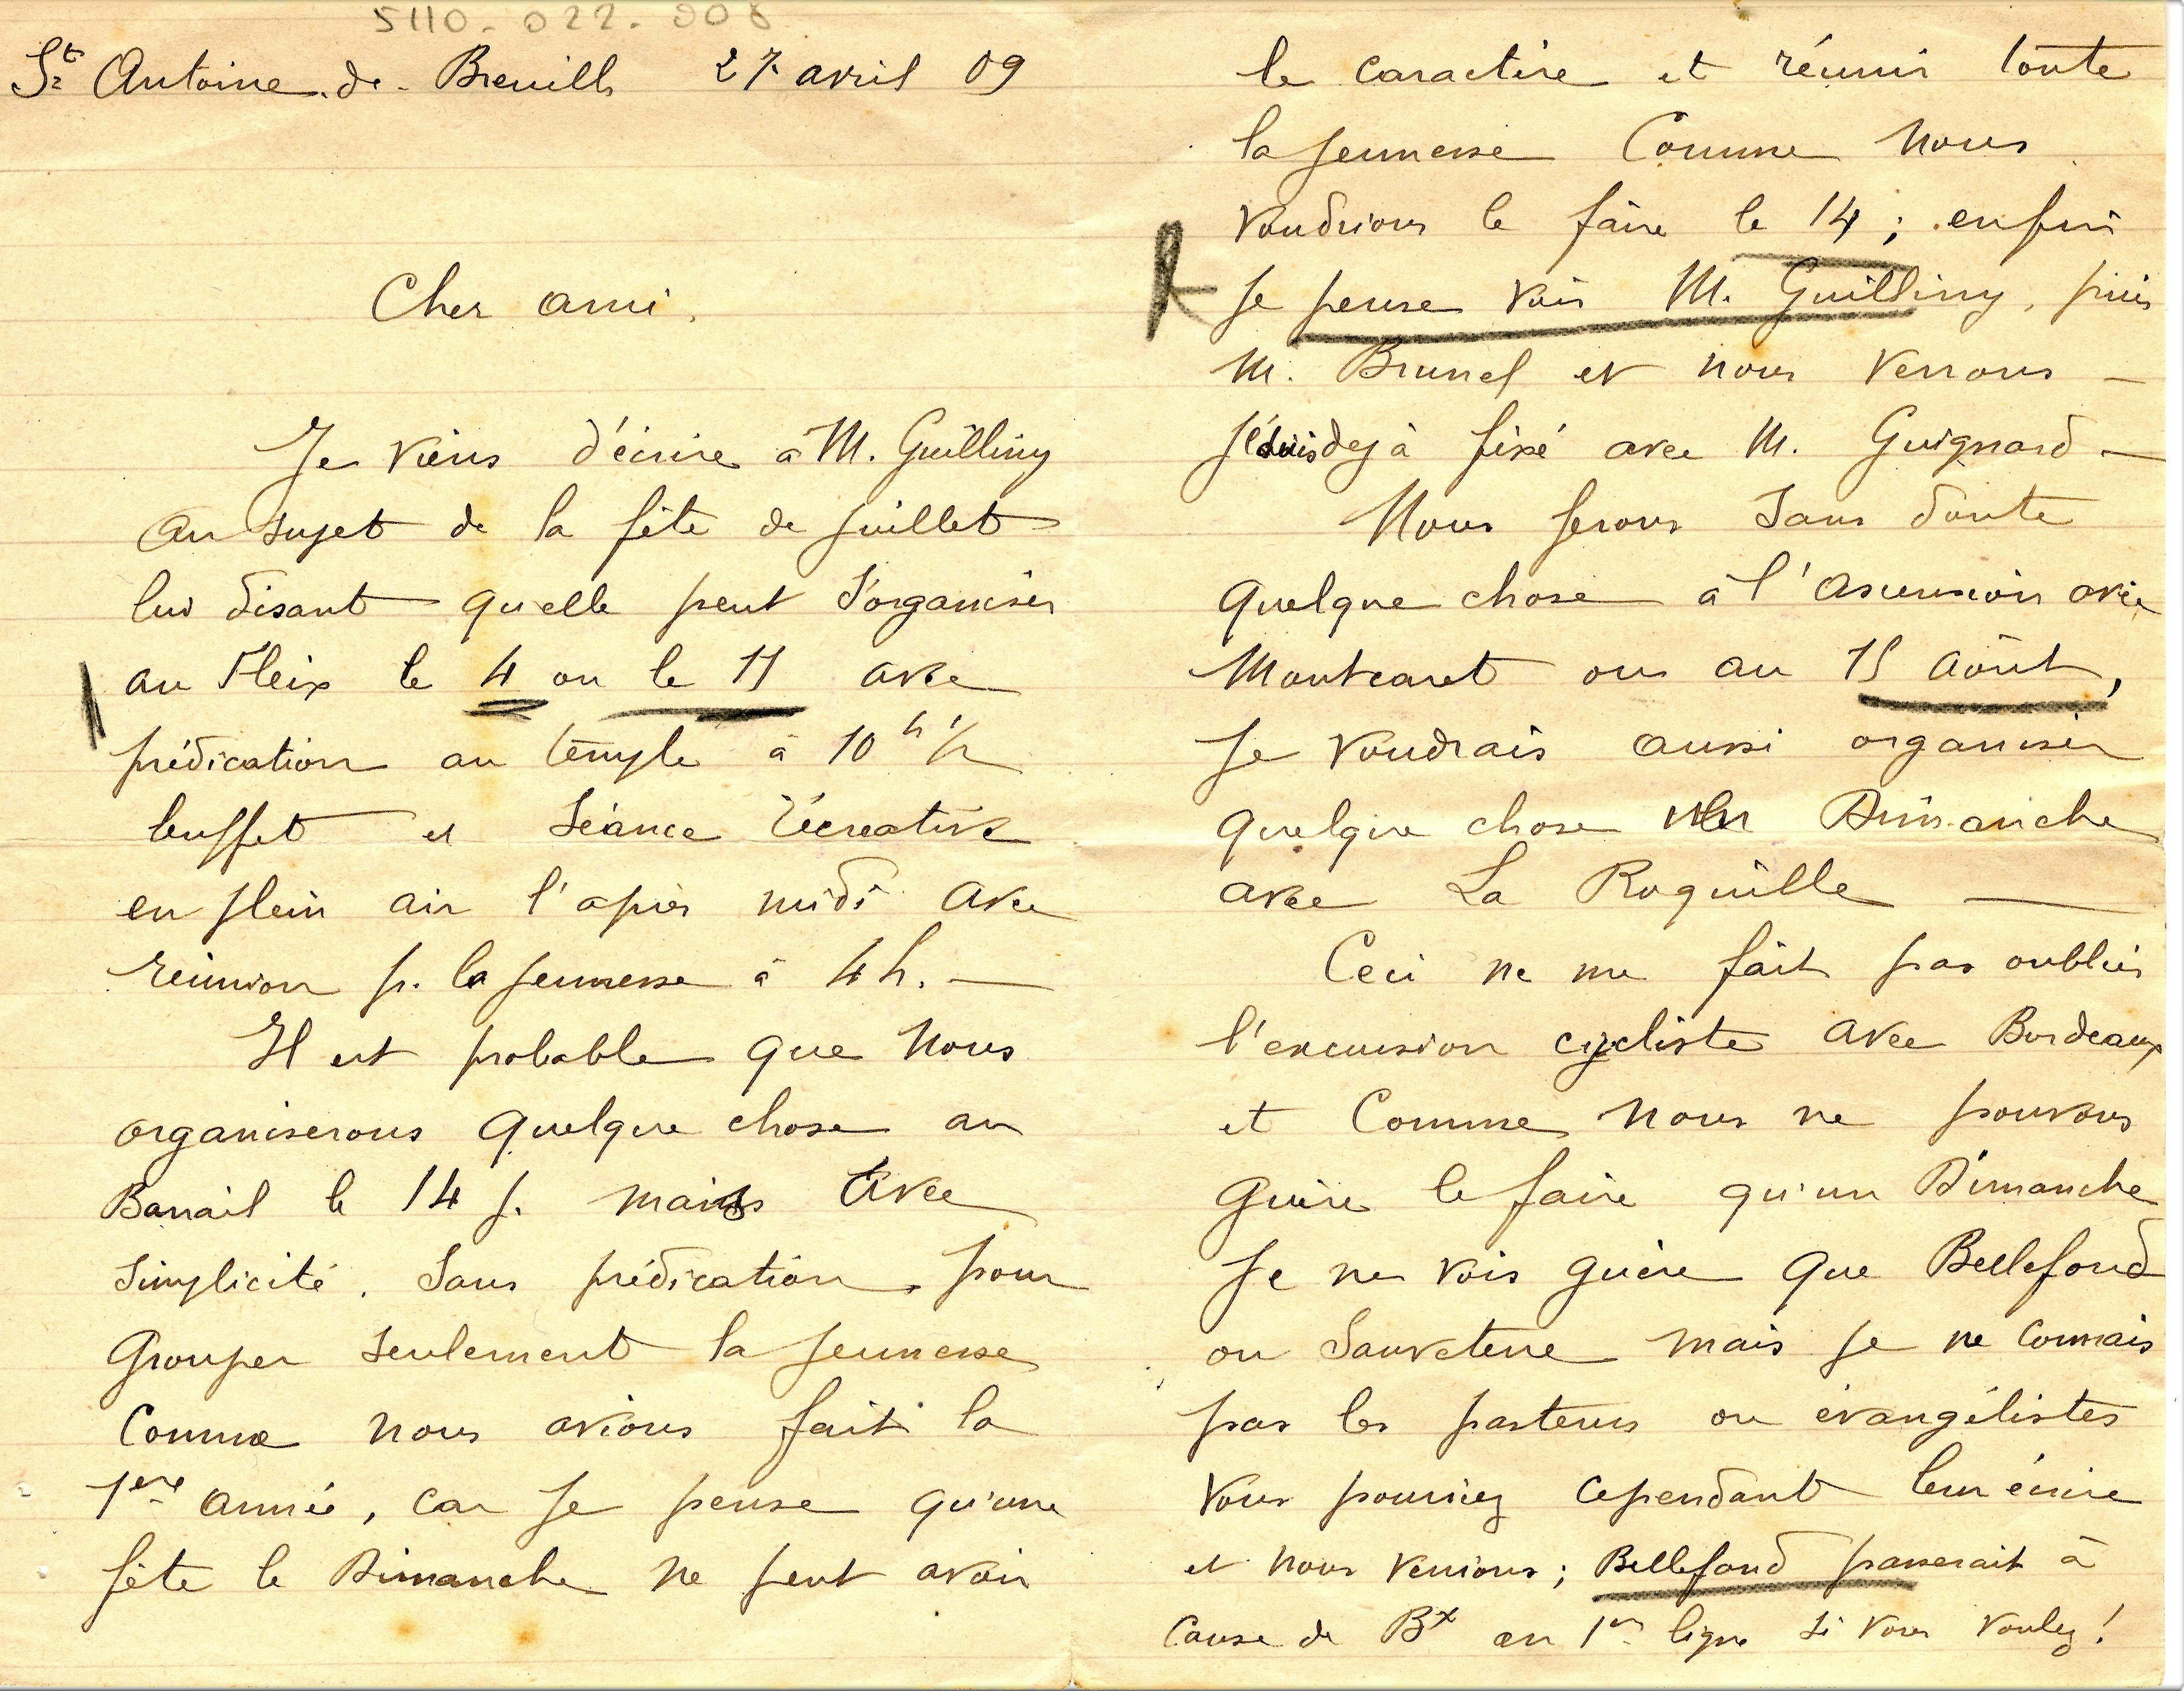 5110.022.008
St Antoine-de-Breuilh 27 avril 09
Cher ami,
Je viens d'écrire à M. Guilliny
au sujet de la fête de juillet
lui disant qu'elle peut s'organiser
au Fleix le 4 ou le 11 avec
prédication au temple à 10 h 1/2
buffet et séance récréative
en plein air l'après midi avec
réunion p. la jeunesse à 4 h. —
Il est probable que nous
organiserons quelque chose au
Barrail le 14 j. mais avec
simplicité. Sans prédication, pour
grouper seulement la jeunesse
comme nous avions fait la
1ère année, car je pense qu'une
fête le Dimanche ne peut avoir
le caractère et réunir toute
la jeunesse comme nous
voudrions le faire le 14 ; enfin
je pense voir M. Guilliny, puis
M. Brunel et nous verrons —
déjà fixé avec M. Guignard —
Nous ferons sans doute
quelque chose à l'Ascension avec
Montcaret ou au 15 août,
je voudrais aussi organiser
quelque chose un Dimanche
avec La Roquille —
Ceci ne me fait pas oublier
l'excursion cycliste avec Bordeaux
et comme nous ne pouvons
guère le faire qu'un Dimanche
je ne vois guère que Bellefond
ou Sauveterre mais je ne connais
pas les pasteurs ou évangélistes
vous pourriez cependant leur écrire
et nous verrions ; Bellefond passerait à
cause de Bx en 1ère ligne si vous voulez !